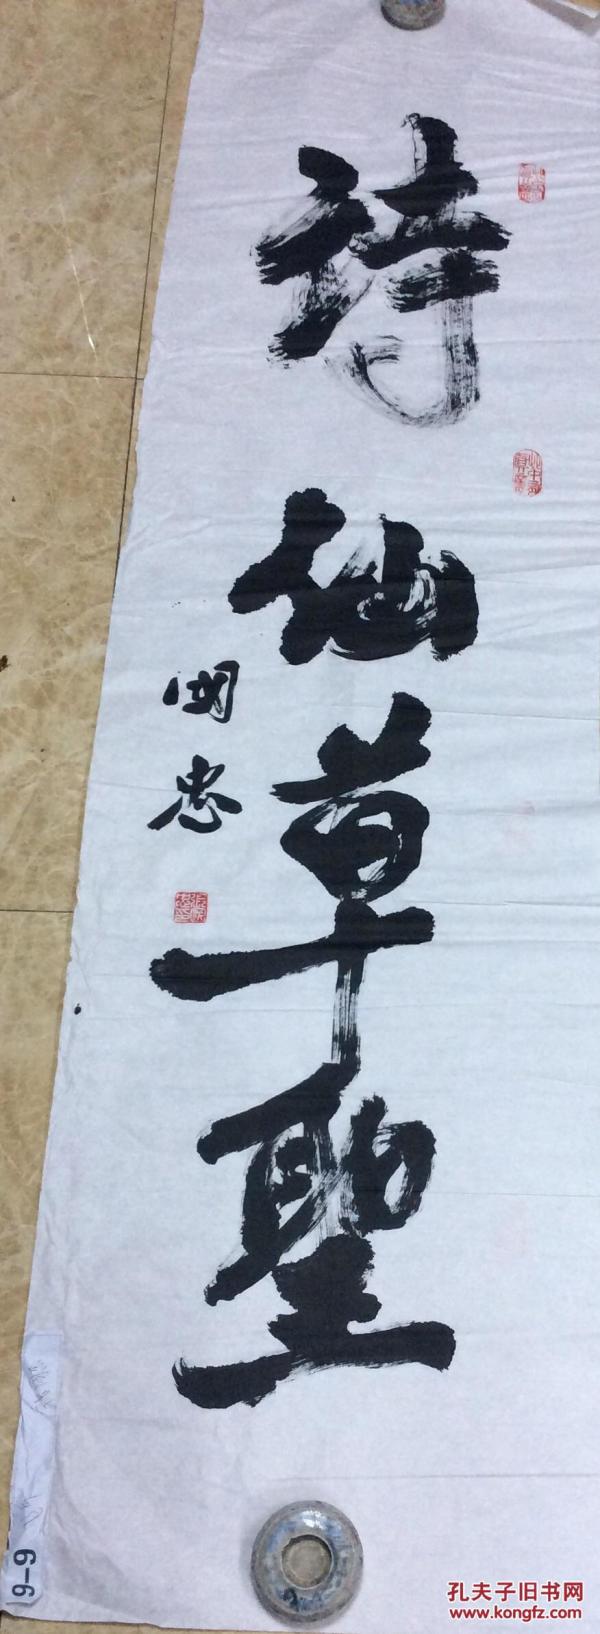 詩仙草聖
国忠
9-9
孔夫子旧书网
www.kongfz.com